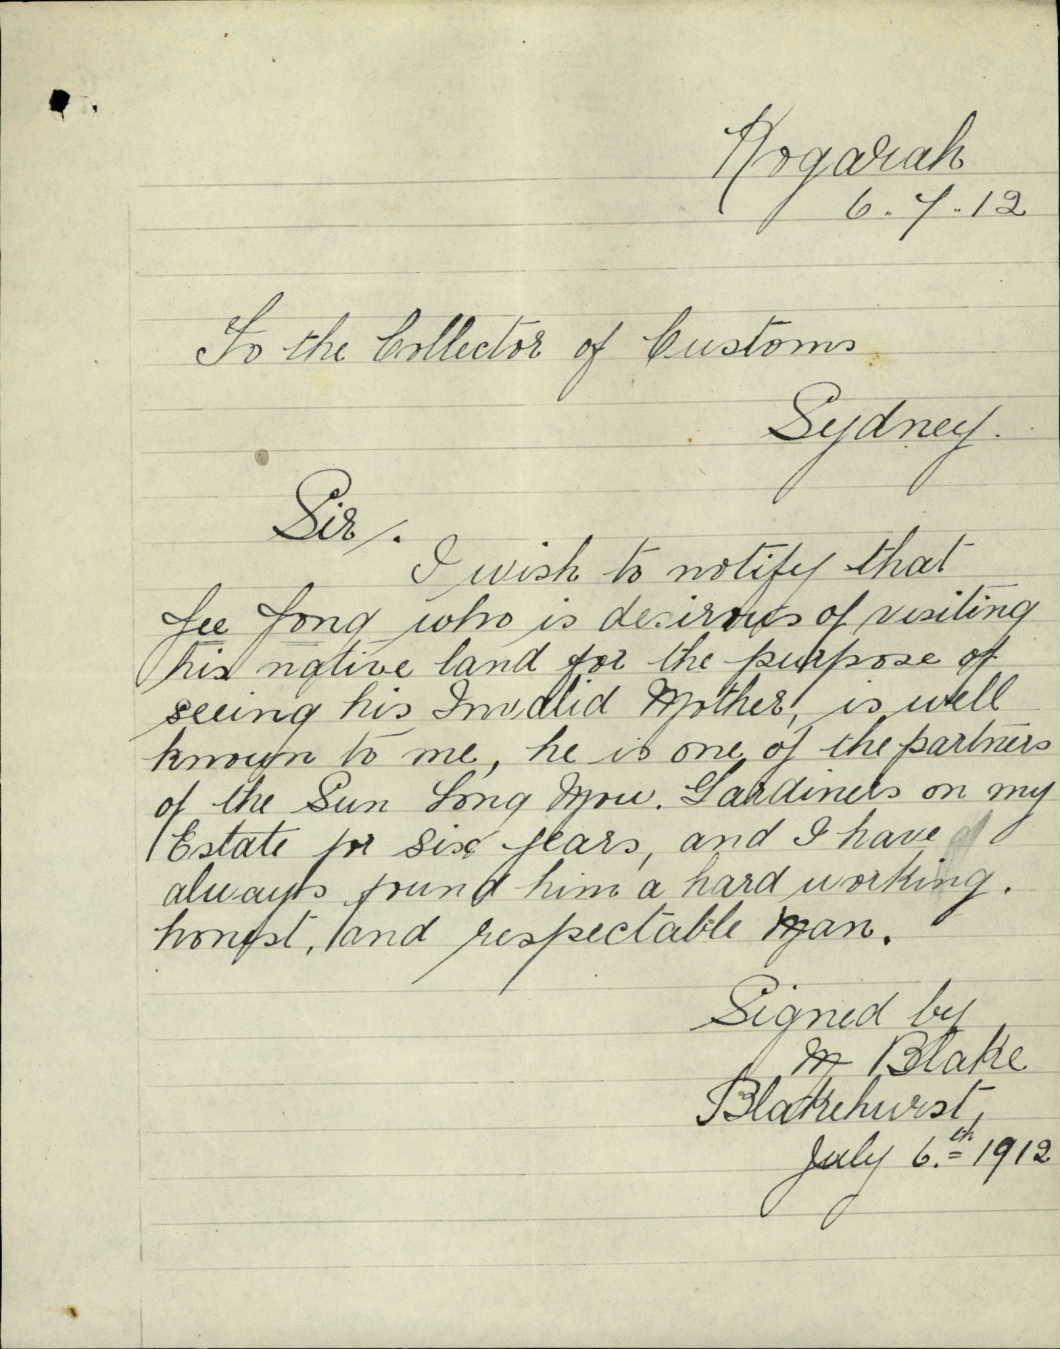 Kogarah
6.7.12
To the Collector of Customs
Sydney.
Sir/.
I wish to notify that
Jee Jong who is desirous of visiting
his native land for the purpose of
seeing his Invalid Mother, is well
known to me, he is one of the partners
of the Sun Long Mow. Gardiners on my
Estate for six years, and I have
always found him a hard working.
honest, and respectable Man.
Signed by
M Blake
Blakehurst,
July 6.th 1912